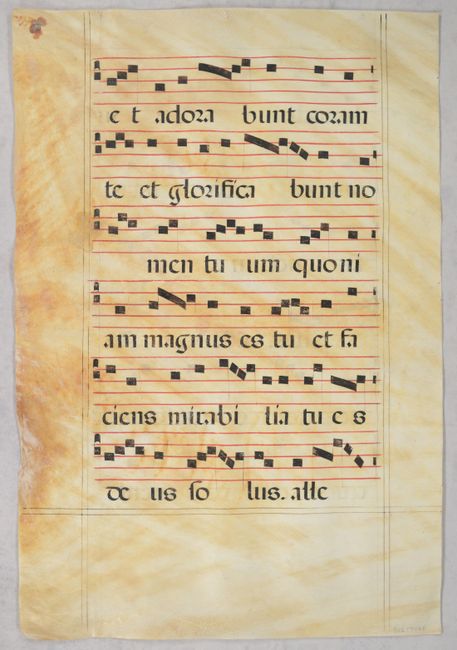 et adora bunt coram
te et glorifica bunt no
men tu um quoni
am magnus es tu et fa
ciens mirabi lia tu e s
de us so lus. alle